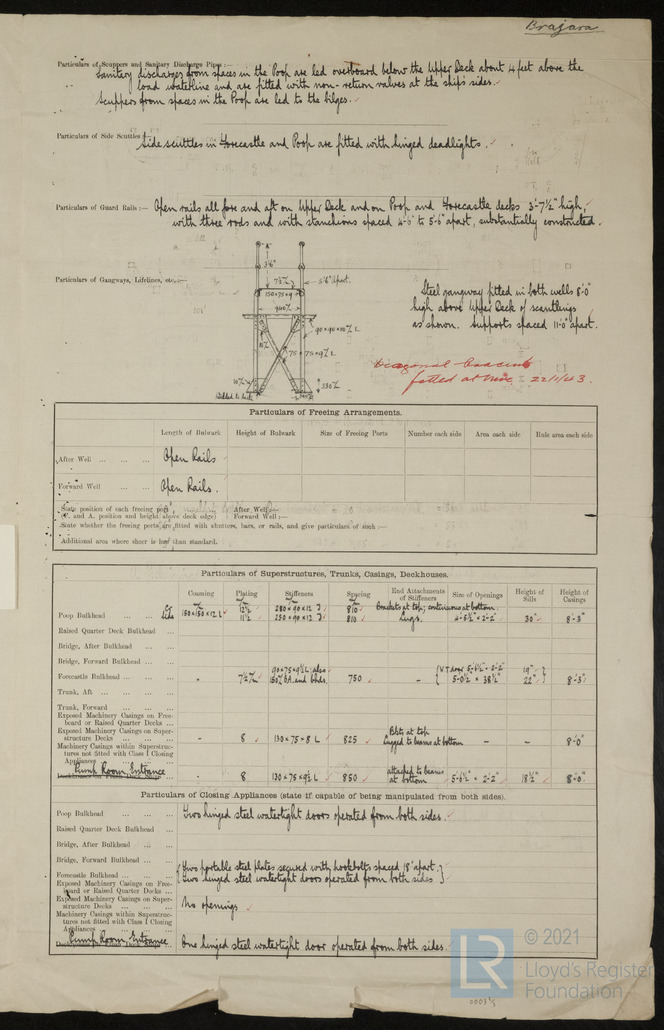 Brajara
Particulars of Scuppers and Sanitary Discharge Pipes :—
Sanitary discharges from spaces in the Poop are led overboard below the Upper Deck about 4 feet above the
load waterline and are fitted with non-return valves at the ship's sides.
Scuppers from spaces in the Poop are led to the bilges.
Particulars of Side Scuttles :—
Side scuttles in Forecastle and Poop are fitted with hinged deadlights.
Particulars of Guard Rails :— Open rails all fore and aft on Upper Deck and on Poop and Forecastle decks 3'-7½" high,
with three rods and with stanchions spaced 4'-6" to 5'-6" apart, substantially constructed.
Particulars of Gangways, Lifelines, etc. :—
3'6"
5'6" apart.
150×75×9
90×90×10 L
75×75×9 L
330
Steel gangway fitted in both wells 8'-0"
high above Upper Deck of scantlings
as shown. Supports spaced 11'-0" apart.
Diagonal bracing
fitted at 22/1/43.
Particulars of Freeing Arrangements.
Length of Bulwark Height of Bulwark Size of Freeing Ports Number each side Area each side Rule area each side
After Well ... ... ... Open Rails
Forward Well ... ... Open Rails.
State position of each freeing port After Well :—
(F. and A. position and height above deck edge) Forward Well :—
State whether the freeing ports are fitted with shutters, bars, or rails, and give particulars of such :—
Additional area where sheer is less than standard.
Particulars of Superstructures, Trunks, Casings, Deckhouses.
Coaming Plating Stiffeners Spacing End Attachments of Stiffeners Size of Openings Height of Sills Height of Casings
12½ 280×90×12 810 Brackets at top; continuous at bottom.
Poop Bulkhead ... ... ... Side 150×150×12 L 11½ 250×90×12 810 lugs. 4'-5½" × 2'-2" 30" 8'-3"
Raised Quarter Deck Bulkhead ...
Bridge, After Bulkhead ... ...
Bridge, Forward Bulkhead ...
90×75×9½ L also W.T. door 5'-6½" × 2'-2" 19"
Forecastle Bulkhead ... ... - 7½ 750 - 5'-0½" × 38½" 22" 8'-3"
Trunk, Aft ... ... ... ...
Trunk, Forward ... ... ...
Exposed Machinery Casings on Free-
board or Raised Quarter Decks ...
Exposed Machinery Casings on Super-
structure Decks ... ... ... - 8 130×75×8 L 825 Bkts at top lugged to beams at bottom - - 8'-0"
Machinery Casings within Superstruc-
tures not fitted with Class I Closing
Appliances ... ... ...
Pump Room Entrance - 8 130×75×9½ L 850 attached to beams at bottom 5'-6½" × 2'-2" 18½" 8'-0"
Particulars of Closing Appliances (state if capable of being manipulated from both sides).
Poop Bulkhead ... ... ... Two hinged steel watertight doors operated from both sides.
Raised Quarter Deck Bulkhead ...
Bridge, After Bulkhead ... ...
Bridge, Forward Bulkhead ...
Two portable steel plates secured with hookbolts spaced 18" apart.
Forecastle Bulkhead ... ... Two hinged steel watertight doors operated from both sides
Exposed Machinery Casings on Free-
board or Raised Quarter Decks ...
Exposed Machinery Casings on Super-
structure Decks ... ... ... No openings
Machinery Casings within Superstruc-
tures not fitted with Class I Closing
Appliances ... ... ...
Pump Room Entrance One hinged steel watertight door operated from both sides.
LR
© 2021
Lloyd's Register
Foundation